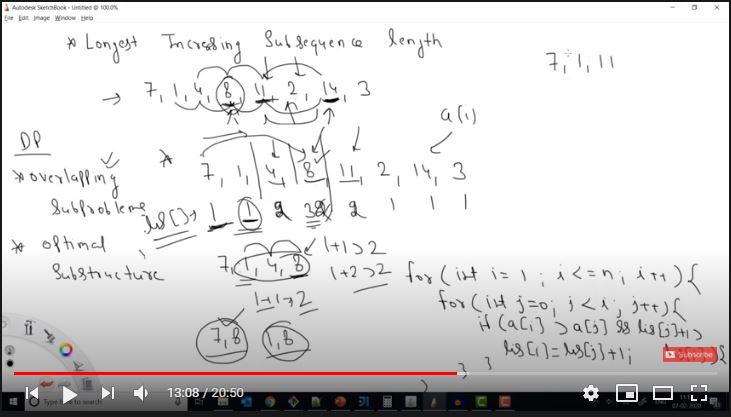 Autodesk SketchBook - Untitled @ 100.0%
File Edit Image Window Help
* Longest Incresing Subsequence length
7, 1, 11
→ 7, 1, 4, 8, 11, 2, 14, 3
a(i)
DP
* overlapping
Subproblems
* 7, 1, 4, 8, 11, 2, 14, 3
lis[]→ 1 1 2 3 2 1 1 1
* optimal
Substructure
7, 1, 4, 8
1+1>2
1+2>2
1+1→2
7,8 1,8
for (int i = 1 ; i <= n ; i++){
for (int j=0; j<i; j++){
if (a[i] > a[j] && lis[j]+1>
lis[i]=lis[j]+1;
}
}
}
Subscribe
13:08 / 20:50
Type here to search
07-02-2020